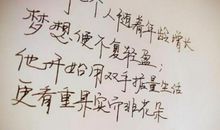 个人随着年龄增长
梦想便不复轻盈;
他开始用双手掂量生活
更看重果实而非花朵